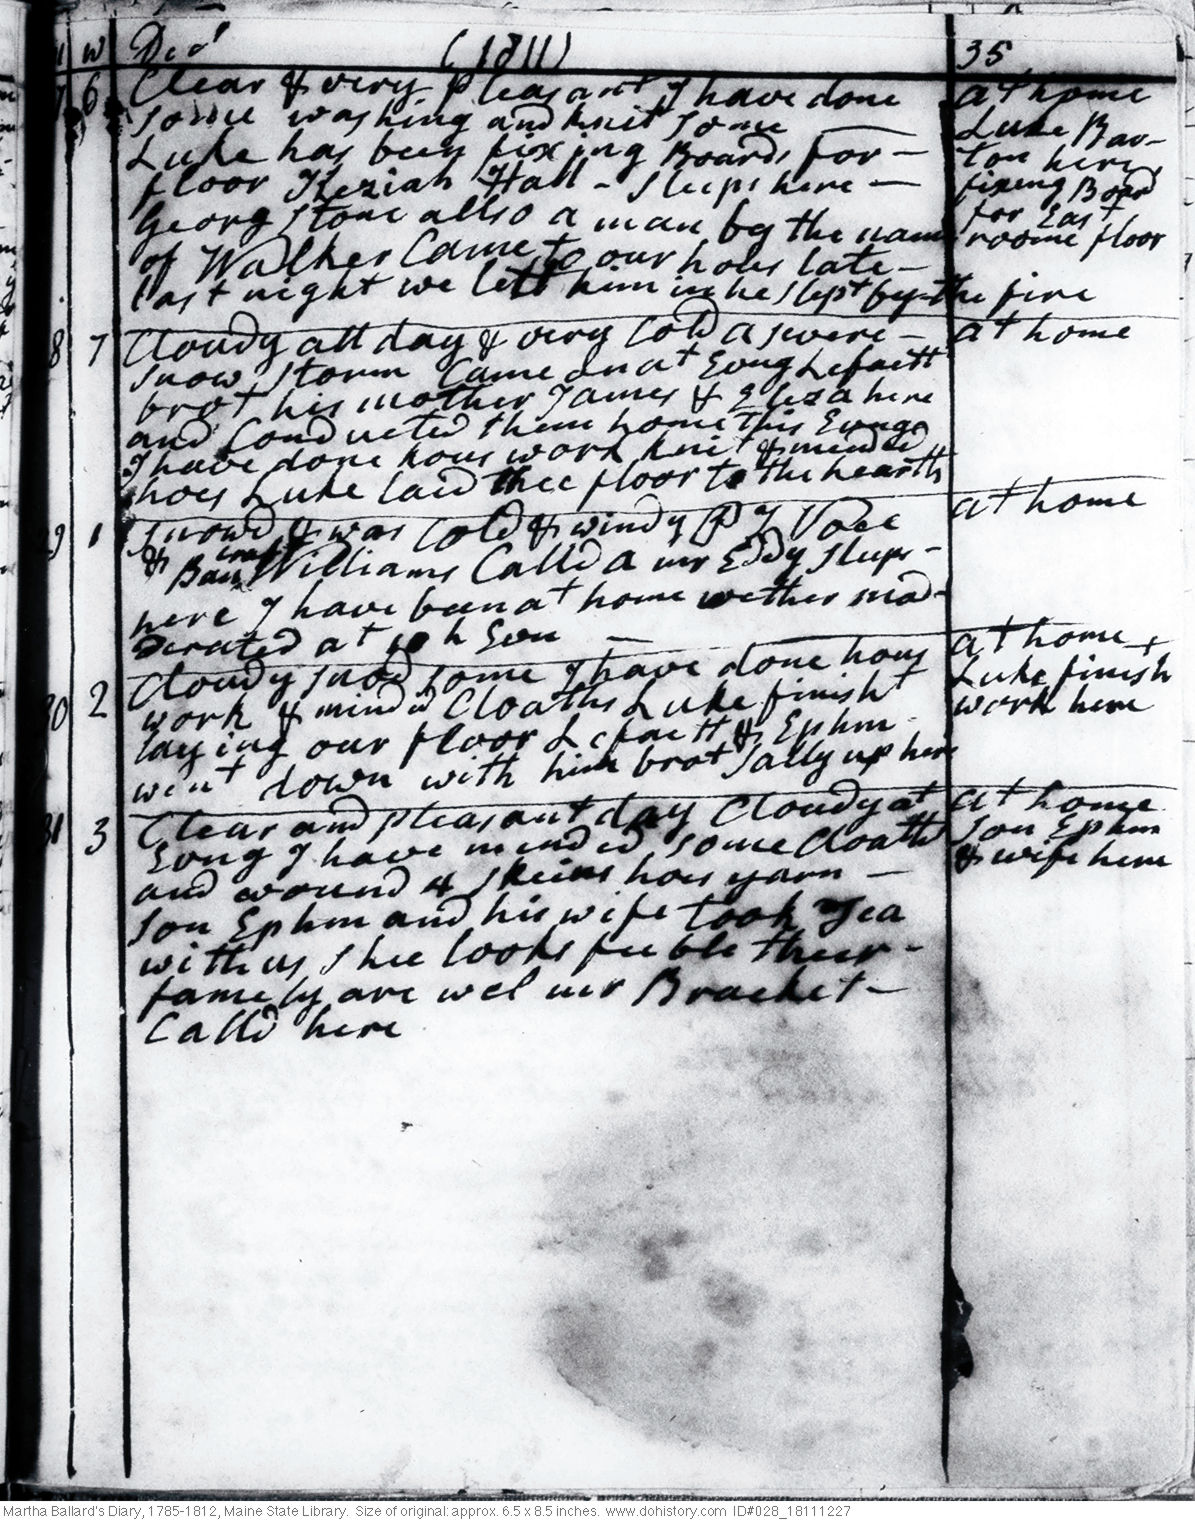 w Decr (1811) 35
7 6 Clear & very pleasant I have done
some washing and knit some
Luke has been fixing Boards for -
floor Keziah Hall - sleeps here -
Georg Stone allso a man by the name
of Walker Came to our hous late -
last night we lett him in he slept by the fire
at home
Luke Bar-
ton here
fixing Board
for East
roome floor
8 7 Cloudy all day & very Cold a severe -
snow storm Came on at Evng Lafaett
brot his mother James & Eliza here
and Conducted them home this Evnge
I have done hous work knit & mended
hoes Luke laid thee floor to the hearth
at home
29 1 snowd & was Cold & windy
& Williams Calld a mr Eddy sleeps -
here I have been at home wether mod-
derated at 10 h Evn -
at home
30 2 Cloudy snod some I have done hous
work & mindd Cloaths Luke finisht
laying our floor Lafaett & Ephm
went down with him brot Sally up here
at home +
Luke finish
work here
31 3 Clear and pleasant day Cloudy at
Evng I have mended some Cloaths
and wound 4 skeins hoes yarn -
son Ephm and his wife took Tea
with us shee looks feeble theer -
famely are wel mr Bracket -
Calld here
at home
son Ephm
& wife here
Martha Ballard's Diary, 1785-1812, Maine State Library. Size of original: approx. 6.5 x 8.5 inches. www.dohistory.com ID#028_18111227